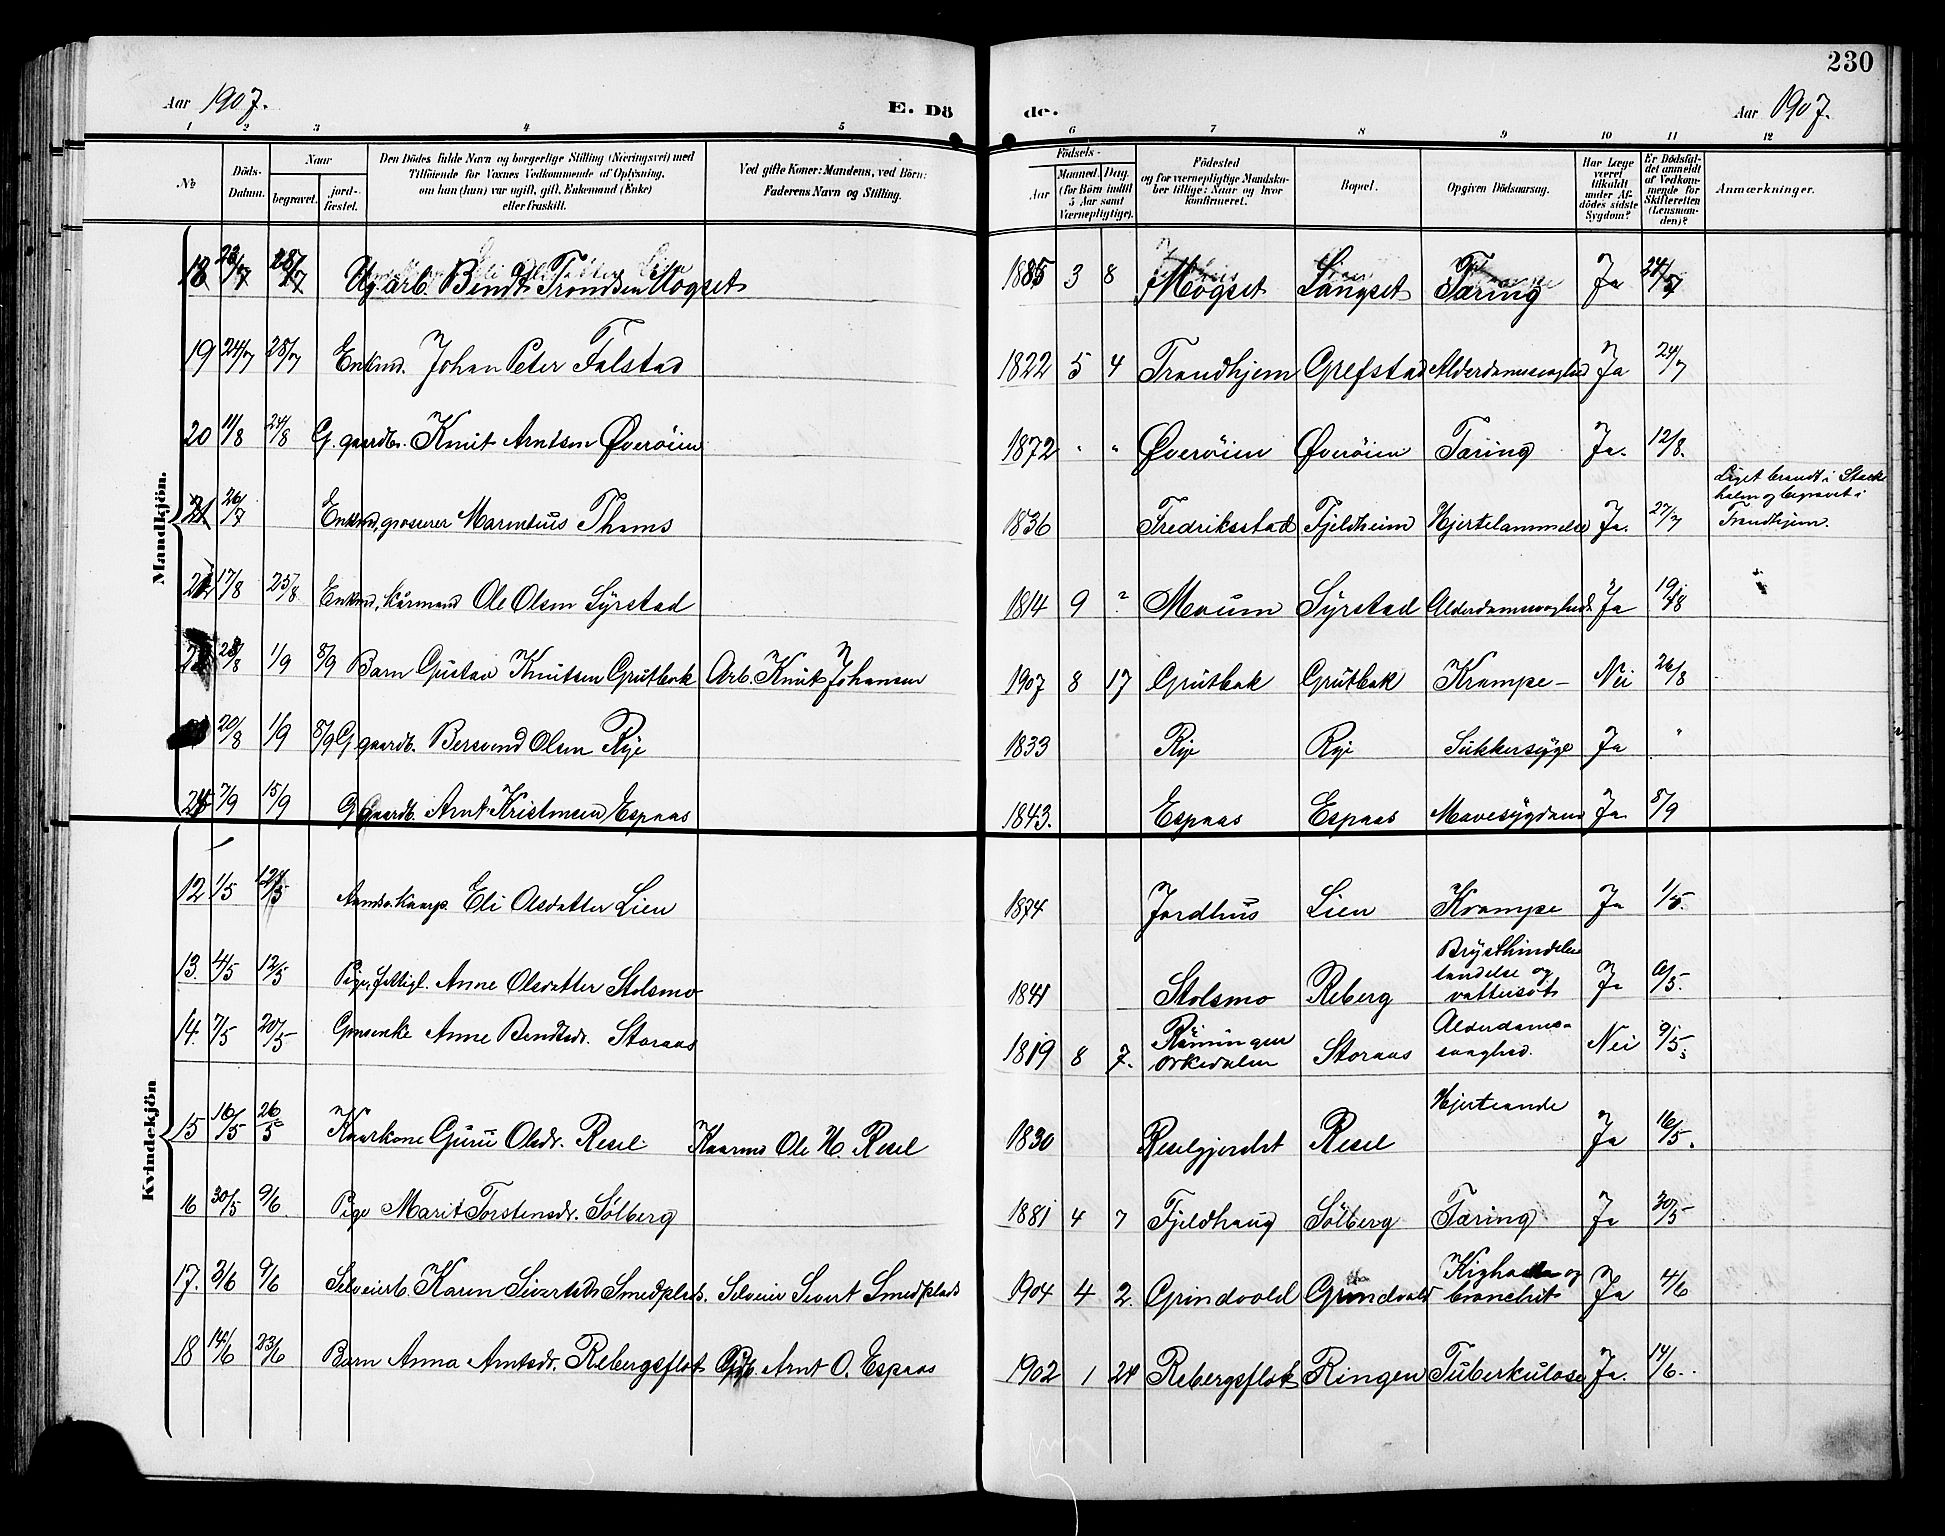 230
Aar 1907.
E. Dö
de.
Aar 1907.
1 2 3 4 5 6 7 8 9 10 11 12
№
Döds-
Datum.
Naar
begravet.
jord-
fæstet.
Den Dödes fulde Navn og borgerlige Stilling (Næringsvei) med
Tilföiende for Voxnes Vedkommende af Oplysning,
om han (hun) var ugift, gift, Enkemand (Enke)
eller fraskilt.
Ved gifte Koner: Mandens, ved Börn:
Faderens Navn og Stilling.
Födsels-
Aar
Maaned. Dag.
(for Börn indtil
5 Aar samt
Værnepligtige).
Födested
og for værnepligtige Mandskaber
tillige: Naar og hvor
konfirmeret.
Bopæl.
Opgiven Dödsaarsag.
Har Læge
været
tilkaldt
under Afdödes
sidste
Sygdom?
Er Dödsfaldet
anmeldt
af Vedkommende
for
Skifteretten
(Lensmanden)?
Anmærkninger.
Mandkjön.
18 23/7 28/7 Ug. arb. Bendt Trondsen Mogset 1885 3 8 Mogset Langset Tæring Ja 24/7
19 24/7 28/7 Enkmd. Johan Peter Falstad 1822 5 4 Trondhjem Grefstad Alderdomssvaghed Ja 24/7
20 11/8 24/8 G. gaardbr. Knut Arntsen Øverøien 1872 " " Øverøien Øverøien Tæring Ja. 12/8.
21 26/7 Enkmd, grosserer Marentius Thams 1836 Fredriksstad Fjeldheim Hjertelammelse Ja. 27/7 Liget brændt i Stockholm og begravet i Trondhjem.
22 17/8 25/8 Enkmd, kårmand Ole Olsen Syrstad 1814 9 ? Moum Syrstad Alderdomssvaghed. Ja 19/8
28/8 1/9 8/9 Barn Gustav Knutsen Grutbak Arb. Knut Johansen 1907 8 17 Grutbak Grutbak Krampe - Nei 26/8
20/8 1/9 8/9 G gaardb. Bersvend Olsen Rye 1833 Rye Rye Sukkersyge Ja "
7/9 15/9 G gaardb. Arnt Kristensen Espaas 1843. Espaas Espaas Mavesygdom Ja 8/9
Kvindekjön
12 1/5 12/5 Eli Olsdatter Lien 1874 Jordhus Lien Krampe Ja 1/5.
13. 4/5 12/5 Pige, fattigl. Anne Olsdatter Stolsmo 1841 Stolsmo Reberg Brysthindebetændelse og vattersot Ja 6/5.
14. 7/5 20/5 Anne Bendtsdr. Storaas 1819 8 7. Rømmingen Orkedalen Storaas Alderdomssvaghed. Nei 9/5.
15 16/5 26/5 Kaarkone Guru Olsdr. Resel Kaarmd Ole H. Resel 1830 Reselgjerdet Resel Hjerteonde Ja 16/5.
16 30/5 9/6 Pige Marit Torstensdr. Sølberg 1881 4 7 Fjeldhaug Sølberg Tæring Ja 30/5
17. 3/6 9/6 Selveierb. Karen Sivertsd. Smedplads. Selveier Sivert Smedplads 1904 4 2. Grindvold Grindvold Kighoste og bronchit Ja 4/6
18 14/6 23/6 Barn Anna Arntsdr. Rebergsflot Gdb. Arnt O. Espaas 1902 1 24 Rebergsflot Ringen Tuberkulose Ja. 14/6.